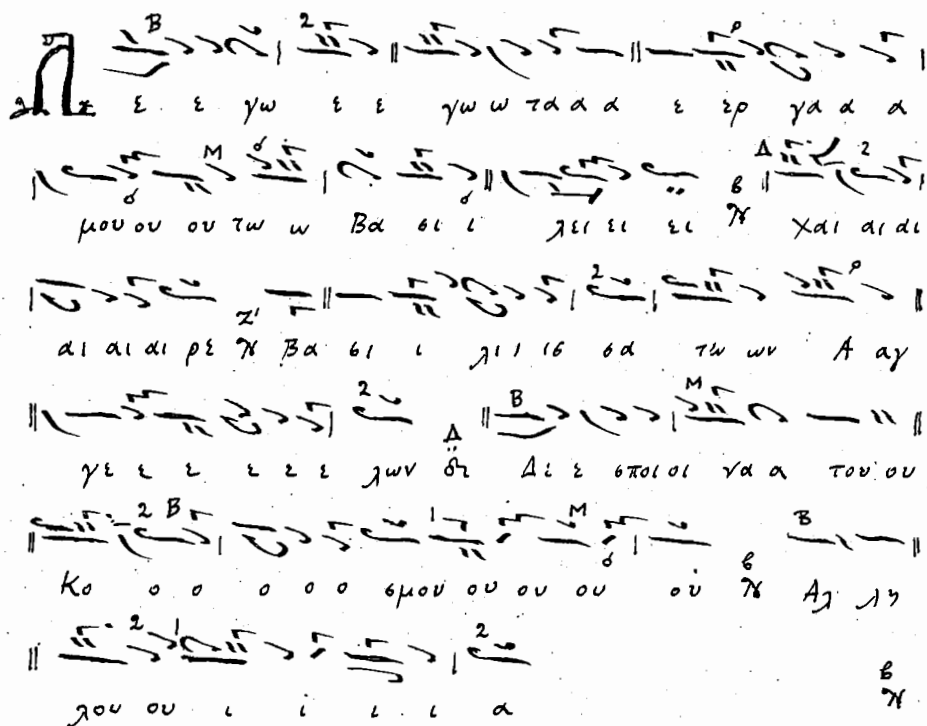 Λ ε ε γω ε ε γω ω τα α α ε ερ γα α α
μου ου ου τω ω Βα σι ι λει ει ει Χαι αι αι
αι αι αι ρε Βα σι ι λι ι ισ σα τω ων Α αγ
γε ε ε ε ε ε λων Δε ε σποι οι να α του ου
Κο ο ο ο ο ο σμου ου ου ου ου Αλ λη
λου ου ι ι ι ι α